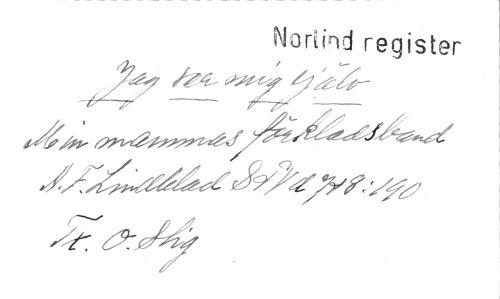 Norlind register
Jag ser mig själv
Min mammas förklädsband
N. F. Lindblad SAVd 718:190
Tx. O. Stig